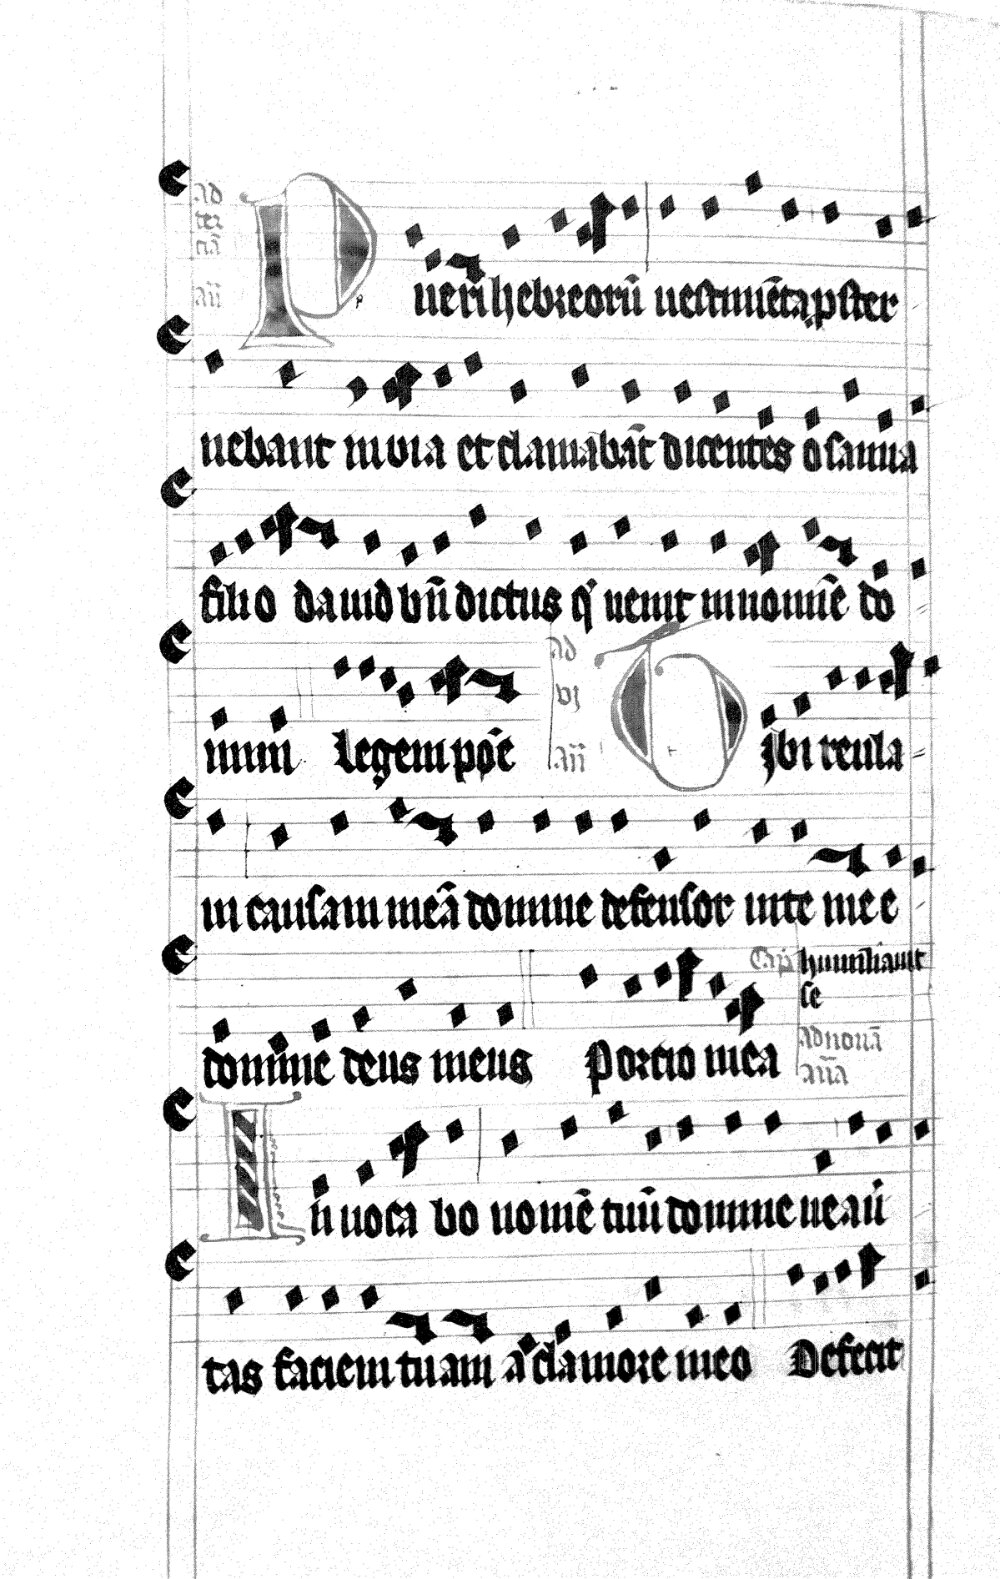 ad
ter
ciā
añ
Pueri hebreorū vestimēta pster
nebant in via et clamabāt dicentes osanna
filio dauid bn̄dictus q' uenit in nomīe do
mini Legem pōe
ad
vj
añ
Tibi reuela
ui causam meā domine defensor uite mee
domine deus meus Portio mea
Cap̄ humiliauit
se
ad nonā
aña
Inuocabo nomē tuū domine ne aū
tas faciem tuam a clamore meo Defecit